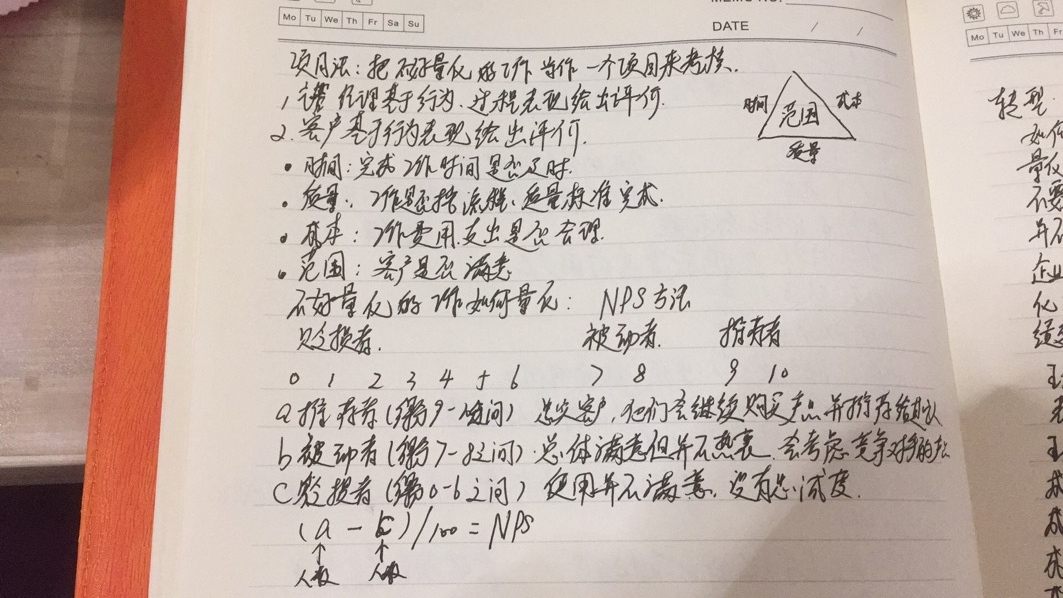 Mo Tu We Th Fr Sa Su
MEMO NO.
DATE / /
项目法：把不好量化的工作当作一个项目来考核.
1, 经理基于行为.过程表现给出评价.
2. 客户基于行为表现给出评价.
时间 范围 成本
质量
• 时间：完成工作时间是否及时.
• 质量：工作是否按流程、质量标准完成.
• 成本：工作费用支出是否合理.
• 范围：客户是否满意
不好量化的工作如何量化： NPS方法
贬损者. 被动者. 推荐者
0 1 2 3 4 5 6 7 8 9 10
a 推荐者(得分9-10之间) 忠实客户，他们会继续购买产品并推荐给其他人
b 被动者(得分7-8之间) 总体满意但并不热衷. 会考虑竞争对手的产品
C 贬损者(得分0-6之间) 使用并不满意，没有忠诚度.
(a - c)/100 = NPS
↑ ↑
人数 人数
Mo Tu We Th Fr
转型
如何
量化
不要
并不
企业
化
绩